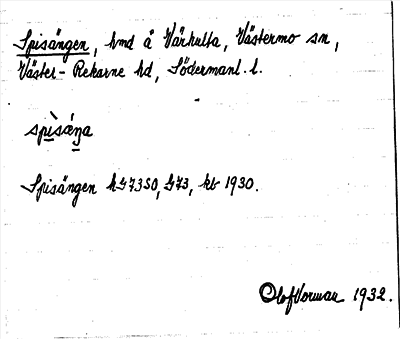 Spisängen, hmd å Vårhulta, Västermo sn,
Väster-Rekarne hd, Södermanl. l.
spìsáŋa
Spisängen kb 1930.
Olof Vorman 1932.